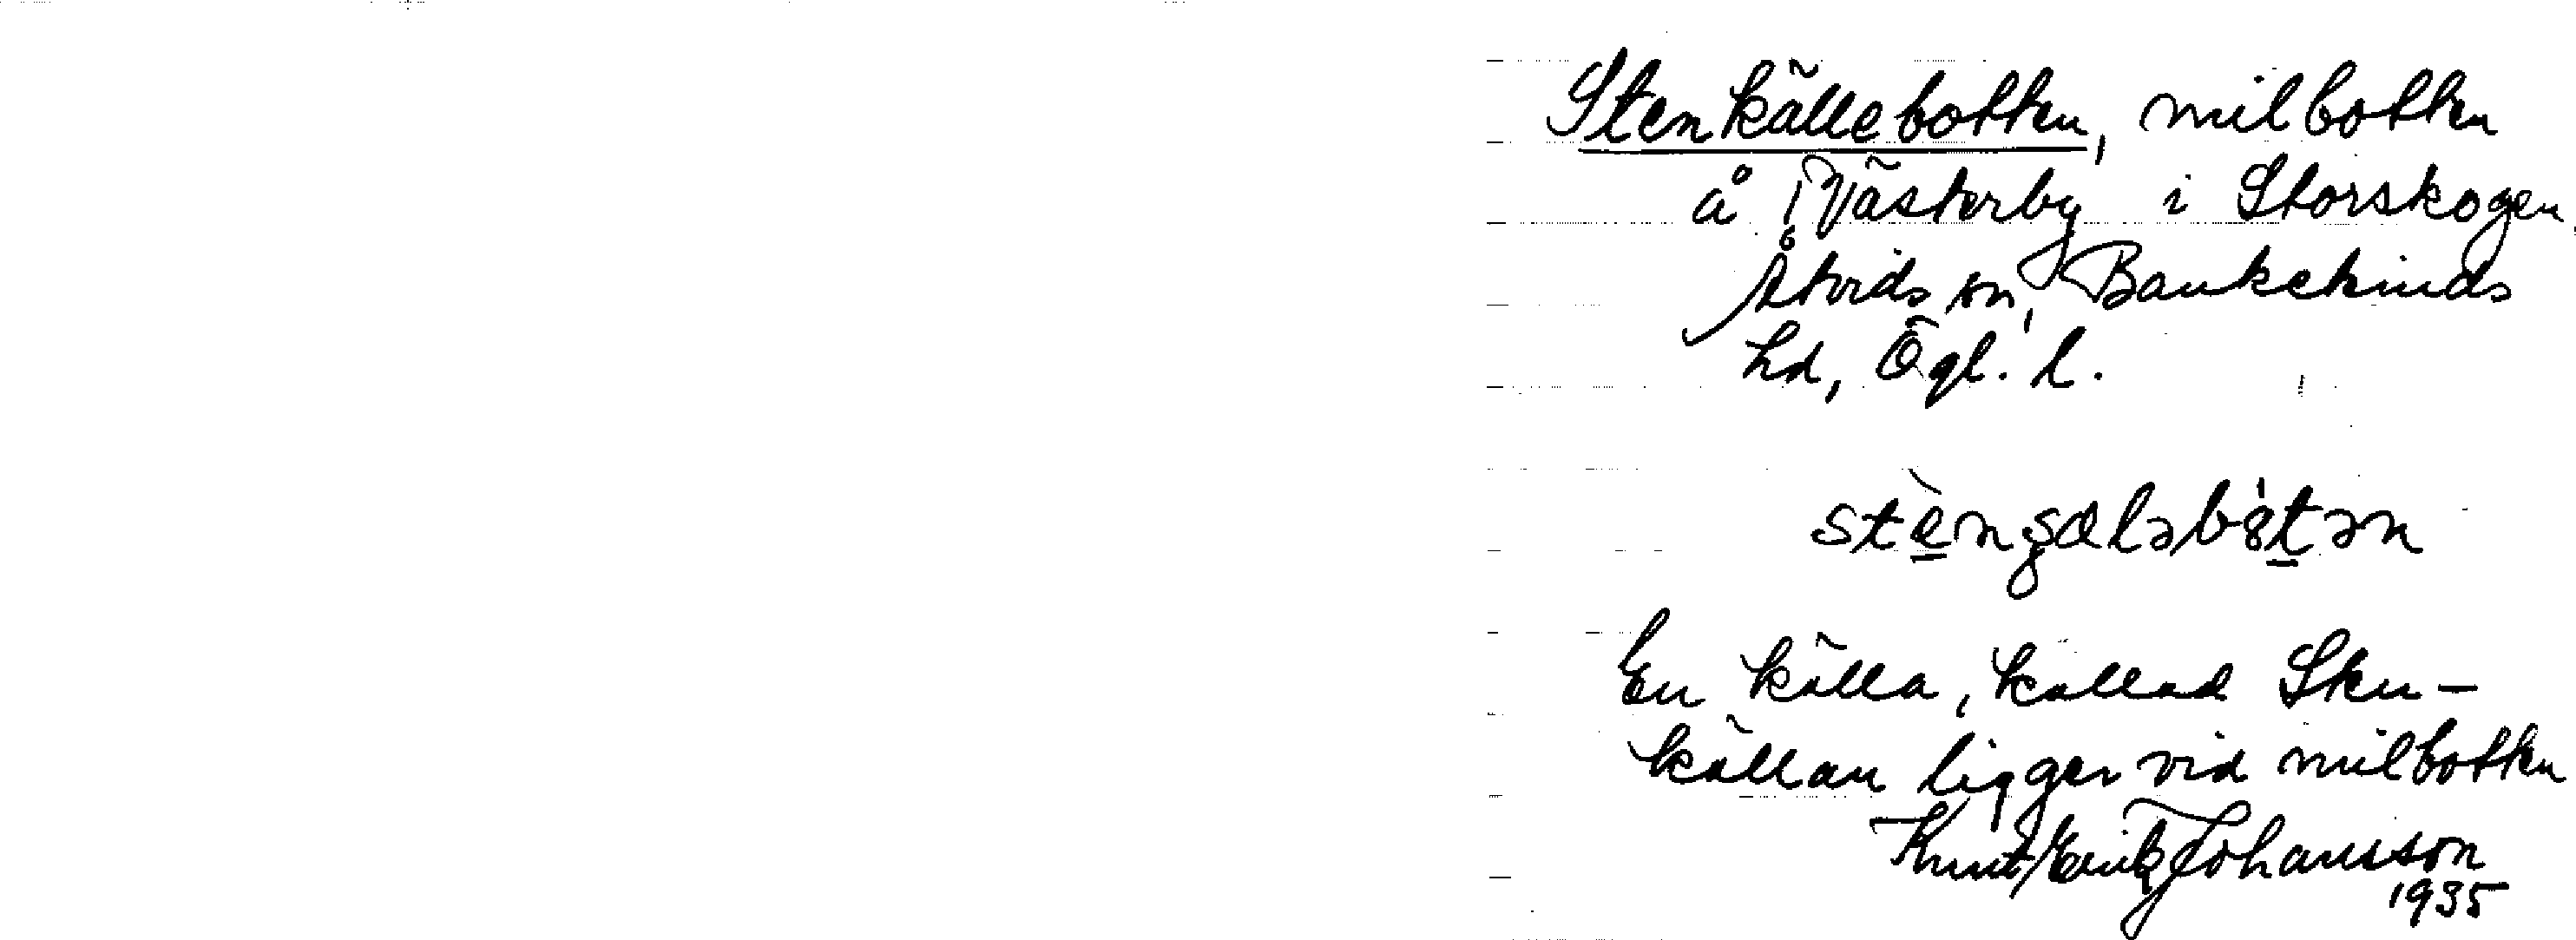 Stenkällebotten, milbotten
å Västerby i Storskogen,
Åtvids sn, Bankekinds
hd, Ögl. l.
En källa, kallad Sten-
källan ligger vid milbotten
Knut Erik Johansson
1935